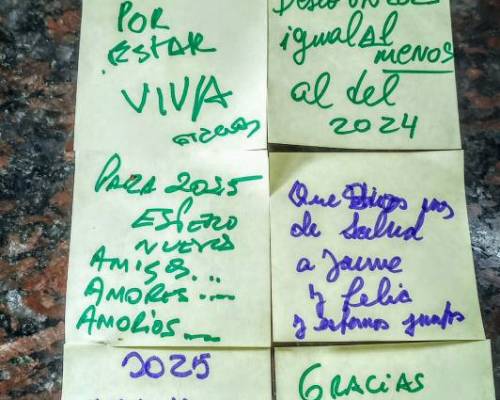 POR
ESTAR
VIVA
GRACIAS
igual al
MENOS
al del
2024
PARA 2025
ESPERO
NUEVOS
AMIGOS...
AMORES....
AMORIOS....
Que Dios nos
de Salud
a Jaume
y Felia
y estemos juntos
2025
GRACIAS